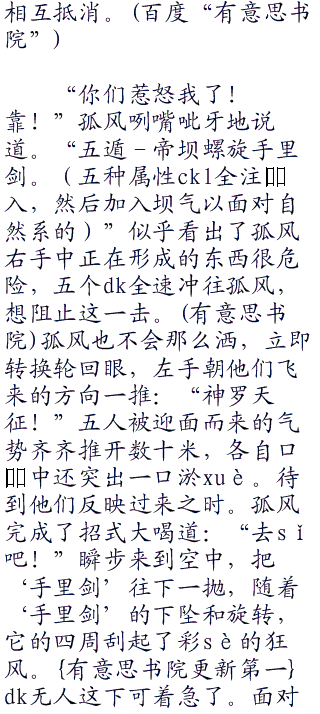 相互抵消。(百度“有意思书
院”)
“你们惹怒我了！
靠！”孤风咧嘴呲牙地说
道。“五遁－帝坝螺旋手里
剑。（五种属性ckl全注
入，然后加入坝气以面对自
然系的）”似乎看出了孤风
右手中正在形成的东西很危
险，五个dk全速冲往孤风，
想阻止这一击。(有意思书
院)孤风也不会那么洒，立即
转换轮回眼，左手朝他们飞
来的方向一推：“神罗天
征！”五人被迎面而来的气
势齐齐推开数十米，各自口
中还突出一口淤xuè。待
到他们反映过来之时。孤风
完成了招式大喝道：“去sǐ
吧！”瞬步来到空中，把
‘手里剑’往下一抛，随着
‘手里剑’的下坠和旋转，
它的四周刮起了彩sè的狂
风。{有意思书院更新第一}
dk无人这下可着急了。面对